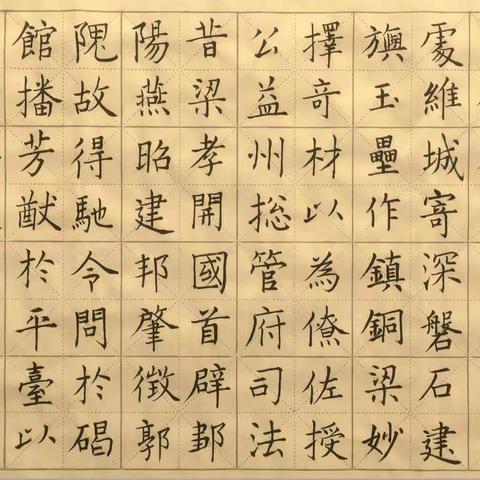 處維城寄深磐石建
旟玉壘作鎮銅梁妙
擇奇材以為僚佐授
公益州捴管府司法
昔梁孝開國首辟鄒
陽燕昭建邦肇徵郭
隗故得馳令問於碣
館播芳猷於平臺以